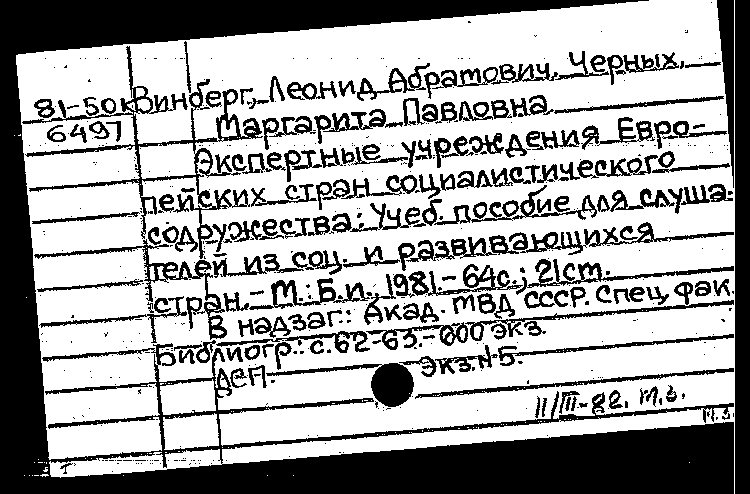 81-50к Винберг, Леонид Абратович, Черных,
6497 Маргарита Павловна.
Экспертные учреждения Евро-
пейских стран социалистического
содружества: Учеб. пособие для слуша-
телей из соц. и развивающихся
стран.-М.: Б.и., 1981.-64с.; 21ст.
В надзаг.: Акад. МВД СССР. Спец. фак.
Библиогр.: с.62-63.-000 экз.
ДСП. Экз.№5.
11/III-82. м.з.
м.з.